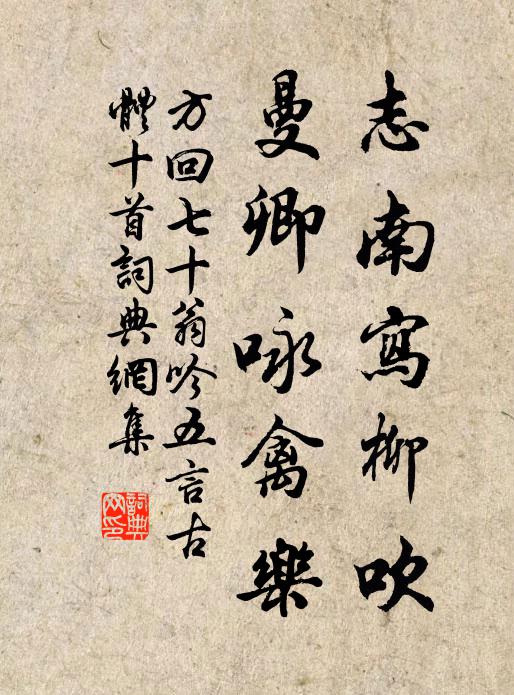 志南寫柳吹
曼卿咏禽樂
方回七十翁吟五言古
體十首詞典網集
詞典
网印